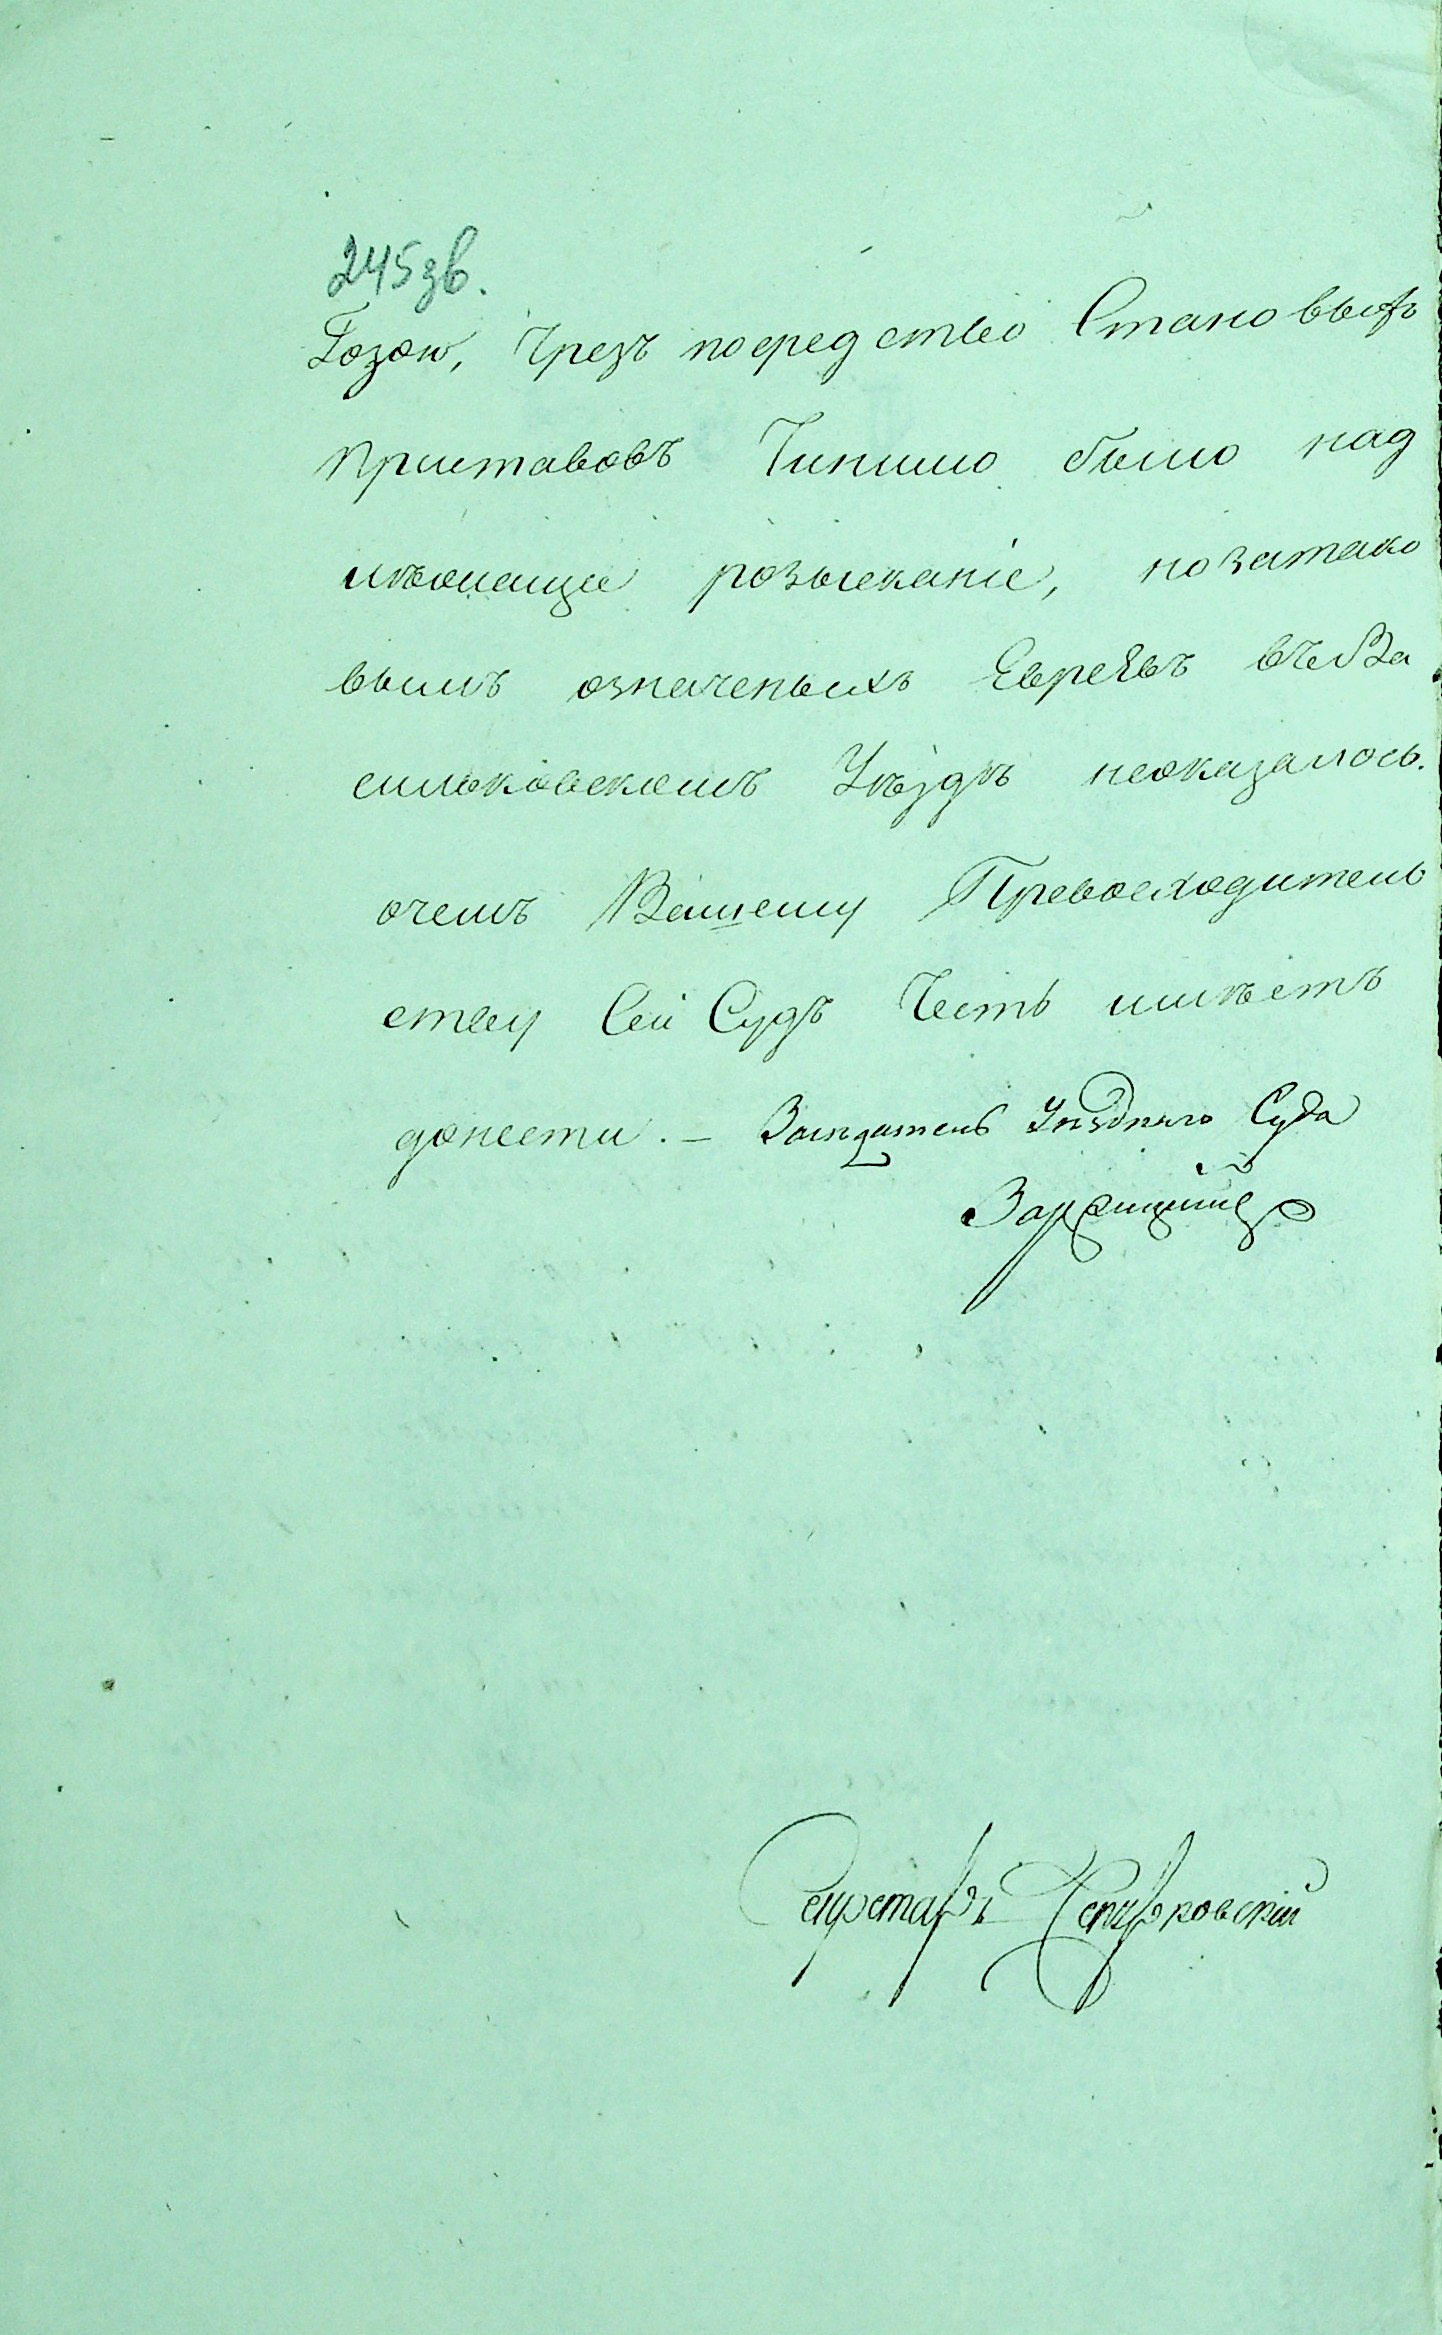 245 зв.
Гозою, Чрезъ посредство Становыхъ
Приставовъ Чинимо было над
лѣжащее розысканіе, но затако
вымъ означеныхъ Евреѣвъ въ Ва
сильковскомъ Уѣздѣ неоказалось.
очемъ Вашему Превосходитель
ству Сей Судъ Честь имѣетъ
донести. — Засѣдатель Уѣзднаго Суда
Секретарь